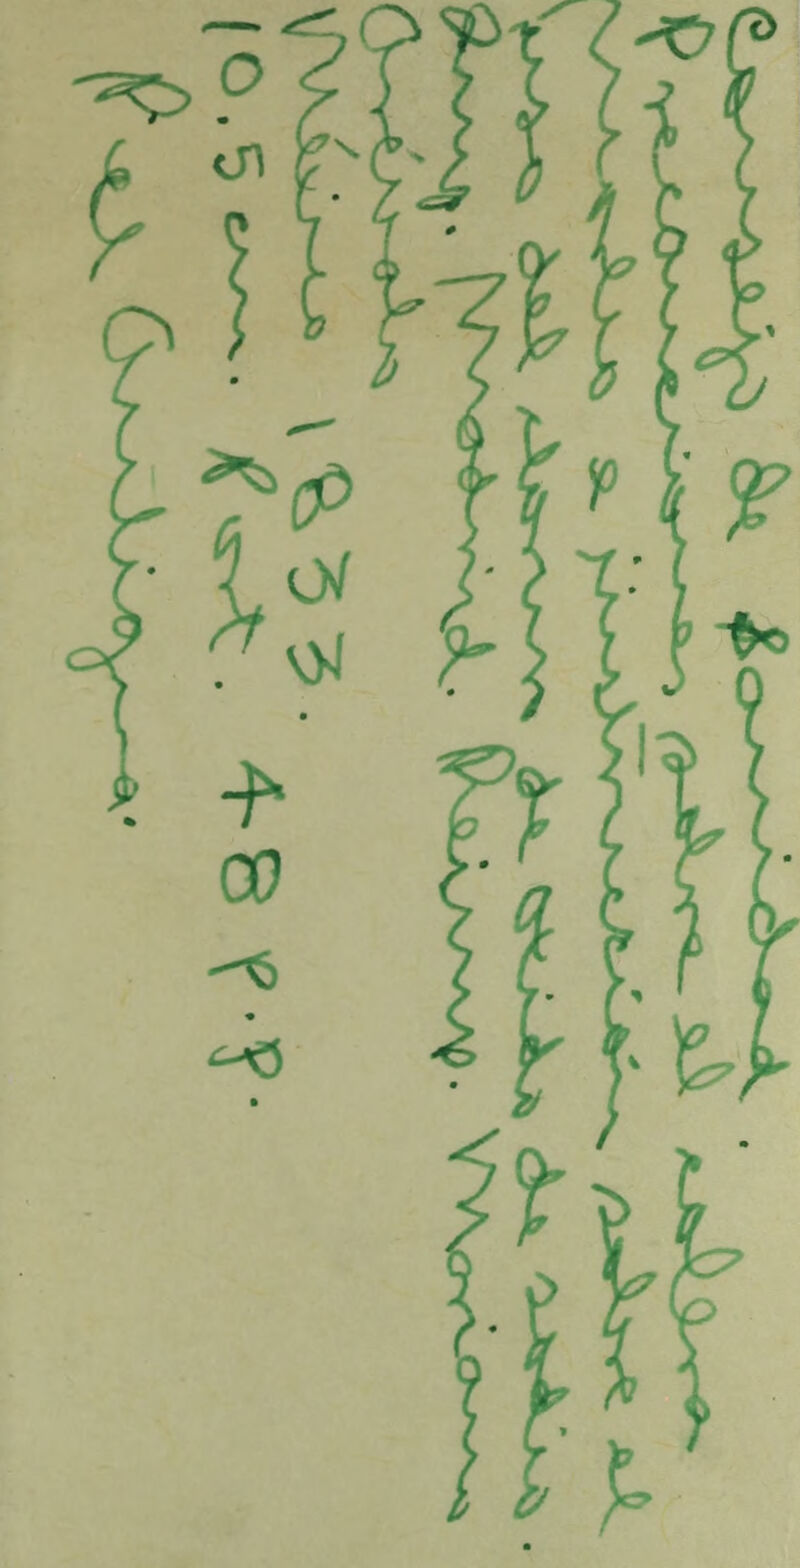 Consejo de Sanidad.
Precauciones sobre el cólera
morbo e instrucción sobre el
uso del cloruro de óxido de sodio.
Madrid. Reimp. Mariano
Arévalo
México 1833.
10.5 cm. Rúst. 48 p.p.
Antigua.